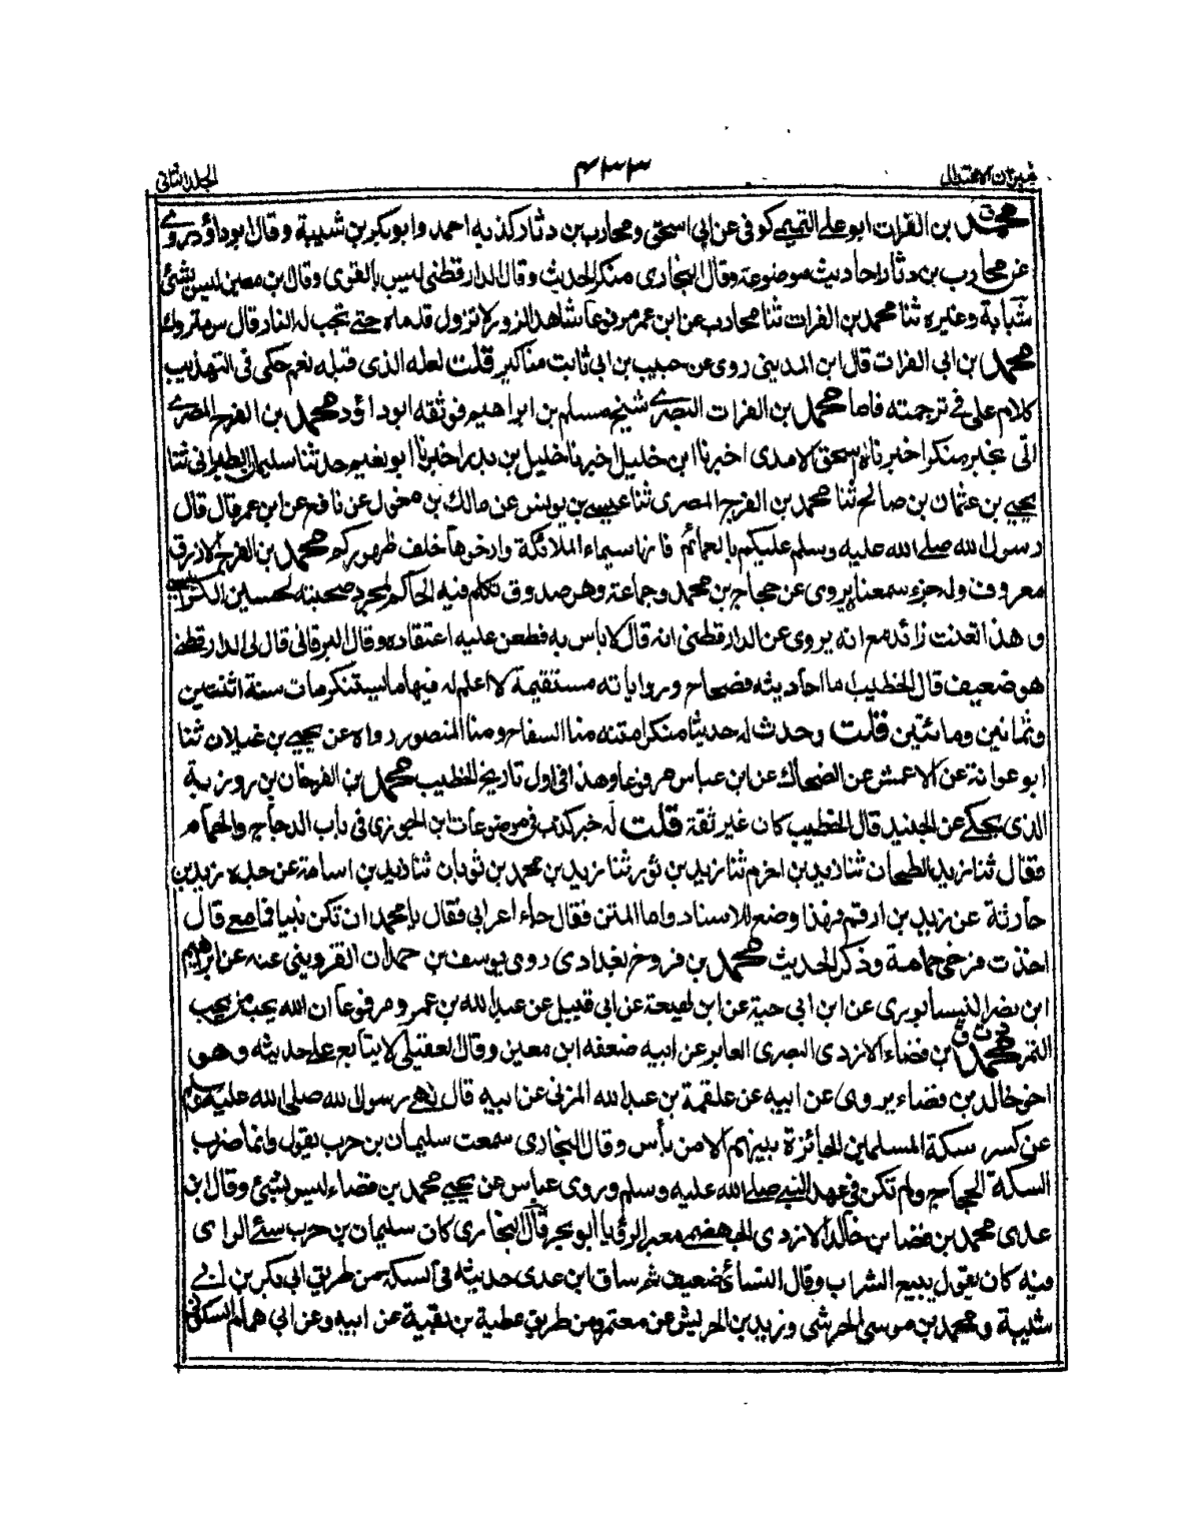 ميزان الاعتدال ۴۳۳ الجلد الثاني
محمد بن الفرات ابو علي التميمي كوفي عن ابي اسحق ومحارب بن دثار كذبه احمد وابو بكر بن شيبة وقال ابو داؤد روى
عن محارب بن دثار احاديث موضوعة وقال البخاري منكر الحديث وقال الدارقطني ليس بالقوى وقال بن معين ليس بشئ
شبابة وغيره ثنا محمد بن الفرات ثنا محارب عن ابن عمر مرفوعا شاهد الزور لا تزول قدماه حتى تجب له النار قال س متروك
محمد بن ابي الفرات قال ابن المديني روى عن حبيب بن ابي ثابت مناكير قلت لعله الذى قبله نعم حكى في التهذيب
كلام على في ترجمته فاما محمد بن الفرات البصرى شيخ مسلم بن ابراهيم فوثقه ابو داؤد محمد بن الفرج المصرى
اتى بخبر منكر اخبرناه اسحق الامدى اخبرنا ابن خليل اخبرنا خليل بن بدر اخبرنا ابو نعيم حدثنا سليمان الطبراني ثنا
يحيى بن عثمان بن صالح ثنا محمد بن الفرج المصرى ثنا عيسى بن يونس عن مالك بن مغول عن نافع عن ابن عمر قال قال
رسول الله صلى الله عليه وسلم عليكم بالعمائم فانها سيماء الملائكة وارخوها خلف ظهوركم محمد بن الفرج الازرق
معروف وله جزء سمعناه يروى عن حجاج بن محمد وجماعة وهو صدوق تكلم فيه الحاكم لمجرد صحبته لحسين الكرابيسى
وهذا تعنت زائد مع انه يروى عن الدارقطنى انه قال لا باس به فطعن عليه اعتقاده وقال البرقاني قال لى الدارقطنى
هو ضعيف قال الخطيب اما احاديثه فصحاح ورواياته مستقيمة لا اعلم له فيها ما يستنكر مات سنة اثنتين
وثمانين ومائتين قلت وحدث له حديثا منكرا متنه منا السفاح ومنا المنصور رواه عن يحيى بن غيلان ثنا
ابو عوانة عن الاعمش عن الضحاك عن ابن عباس مرفوعا وهذا في اول تاريخ الخطيب محمد بن الفرخان بن روزبة
الذى يحكى عن الجنيد قال الخطيب كان غير ثقة قلت له خبر كذب في موضوعات ابن الجوزى في باب الدجاج والحمام
فقال ثنا زيد الطحان ثنا زيد بن اخرم ثنا زيد بن ثور ثنا زيد بن محمد بن ثوبان ثنا زيد بن اسامة عن جده زيد بن
حارثة عن زيد بن ارقم فهذا وضع للاسناد واما المتن فقال جاء اعرابي فقال يا محمد ان تكن نبيا فما معى قال
اخذت فرخى حمامة وذكر الحديث محمد بن فروخ بغدادى روى يوسف بن حمدان القزوينى عنه عن ابراهيم
ابن نصر النيسابورى عن ابن ابي حية عن ابن لهيعة عن ابي قبيل عن عبد الله بن عمرو مرفوعا ان الله يحب من يحب
التمر محمد بن فضاء الازدى البصرى العابر عن ابيه ضعفه ابن معين وقال العقيلى لا يتابع على حديثه وهو
اخو خالد بن فضاء يروى عن ابيه عن علقمة بن عبد الله المزنى عن ابيه قال نهى رسول الله صلى الله عليه وسلم
عن كسر سكة المسلمين الجائزة بينهم الا من بأس وقال البخارى سمعت سليمان بن حرب يقول وانما ضرب
السكة الحجاج ولم تكن في عهد النبى صلى الله عليه وسلم وروى عباس عن يحيى محمد بن فضاء ليس بشئ وقال ابن
عدى محمد بن فضا بن خالد الازدى الجهضمى معبر الرؤيا ابو بحر قال البخارى كان سليمان بن حرب سئ الراى
فيه كان يقول يبيع الشراب وقال النسائ ضعيف ثم ساق ابن عدى حديثه في السكة من طريق ابي بكر بن ابى
شيبة ومحمد بن موسى الحرشى وزيد بن الحريش عن معتمر ومن طريق عطية بن بقية عن ابيه وعن ابي همام السكونى